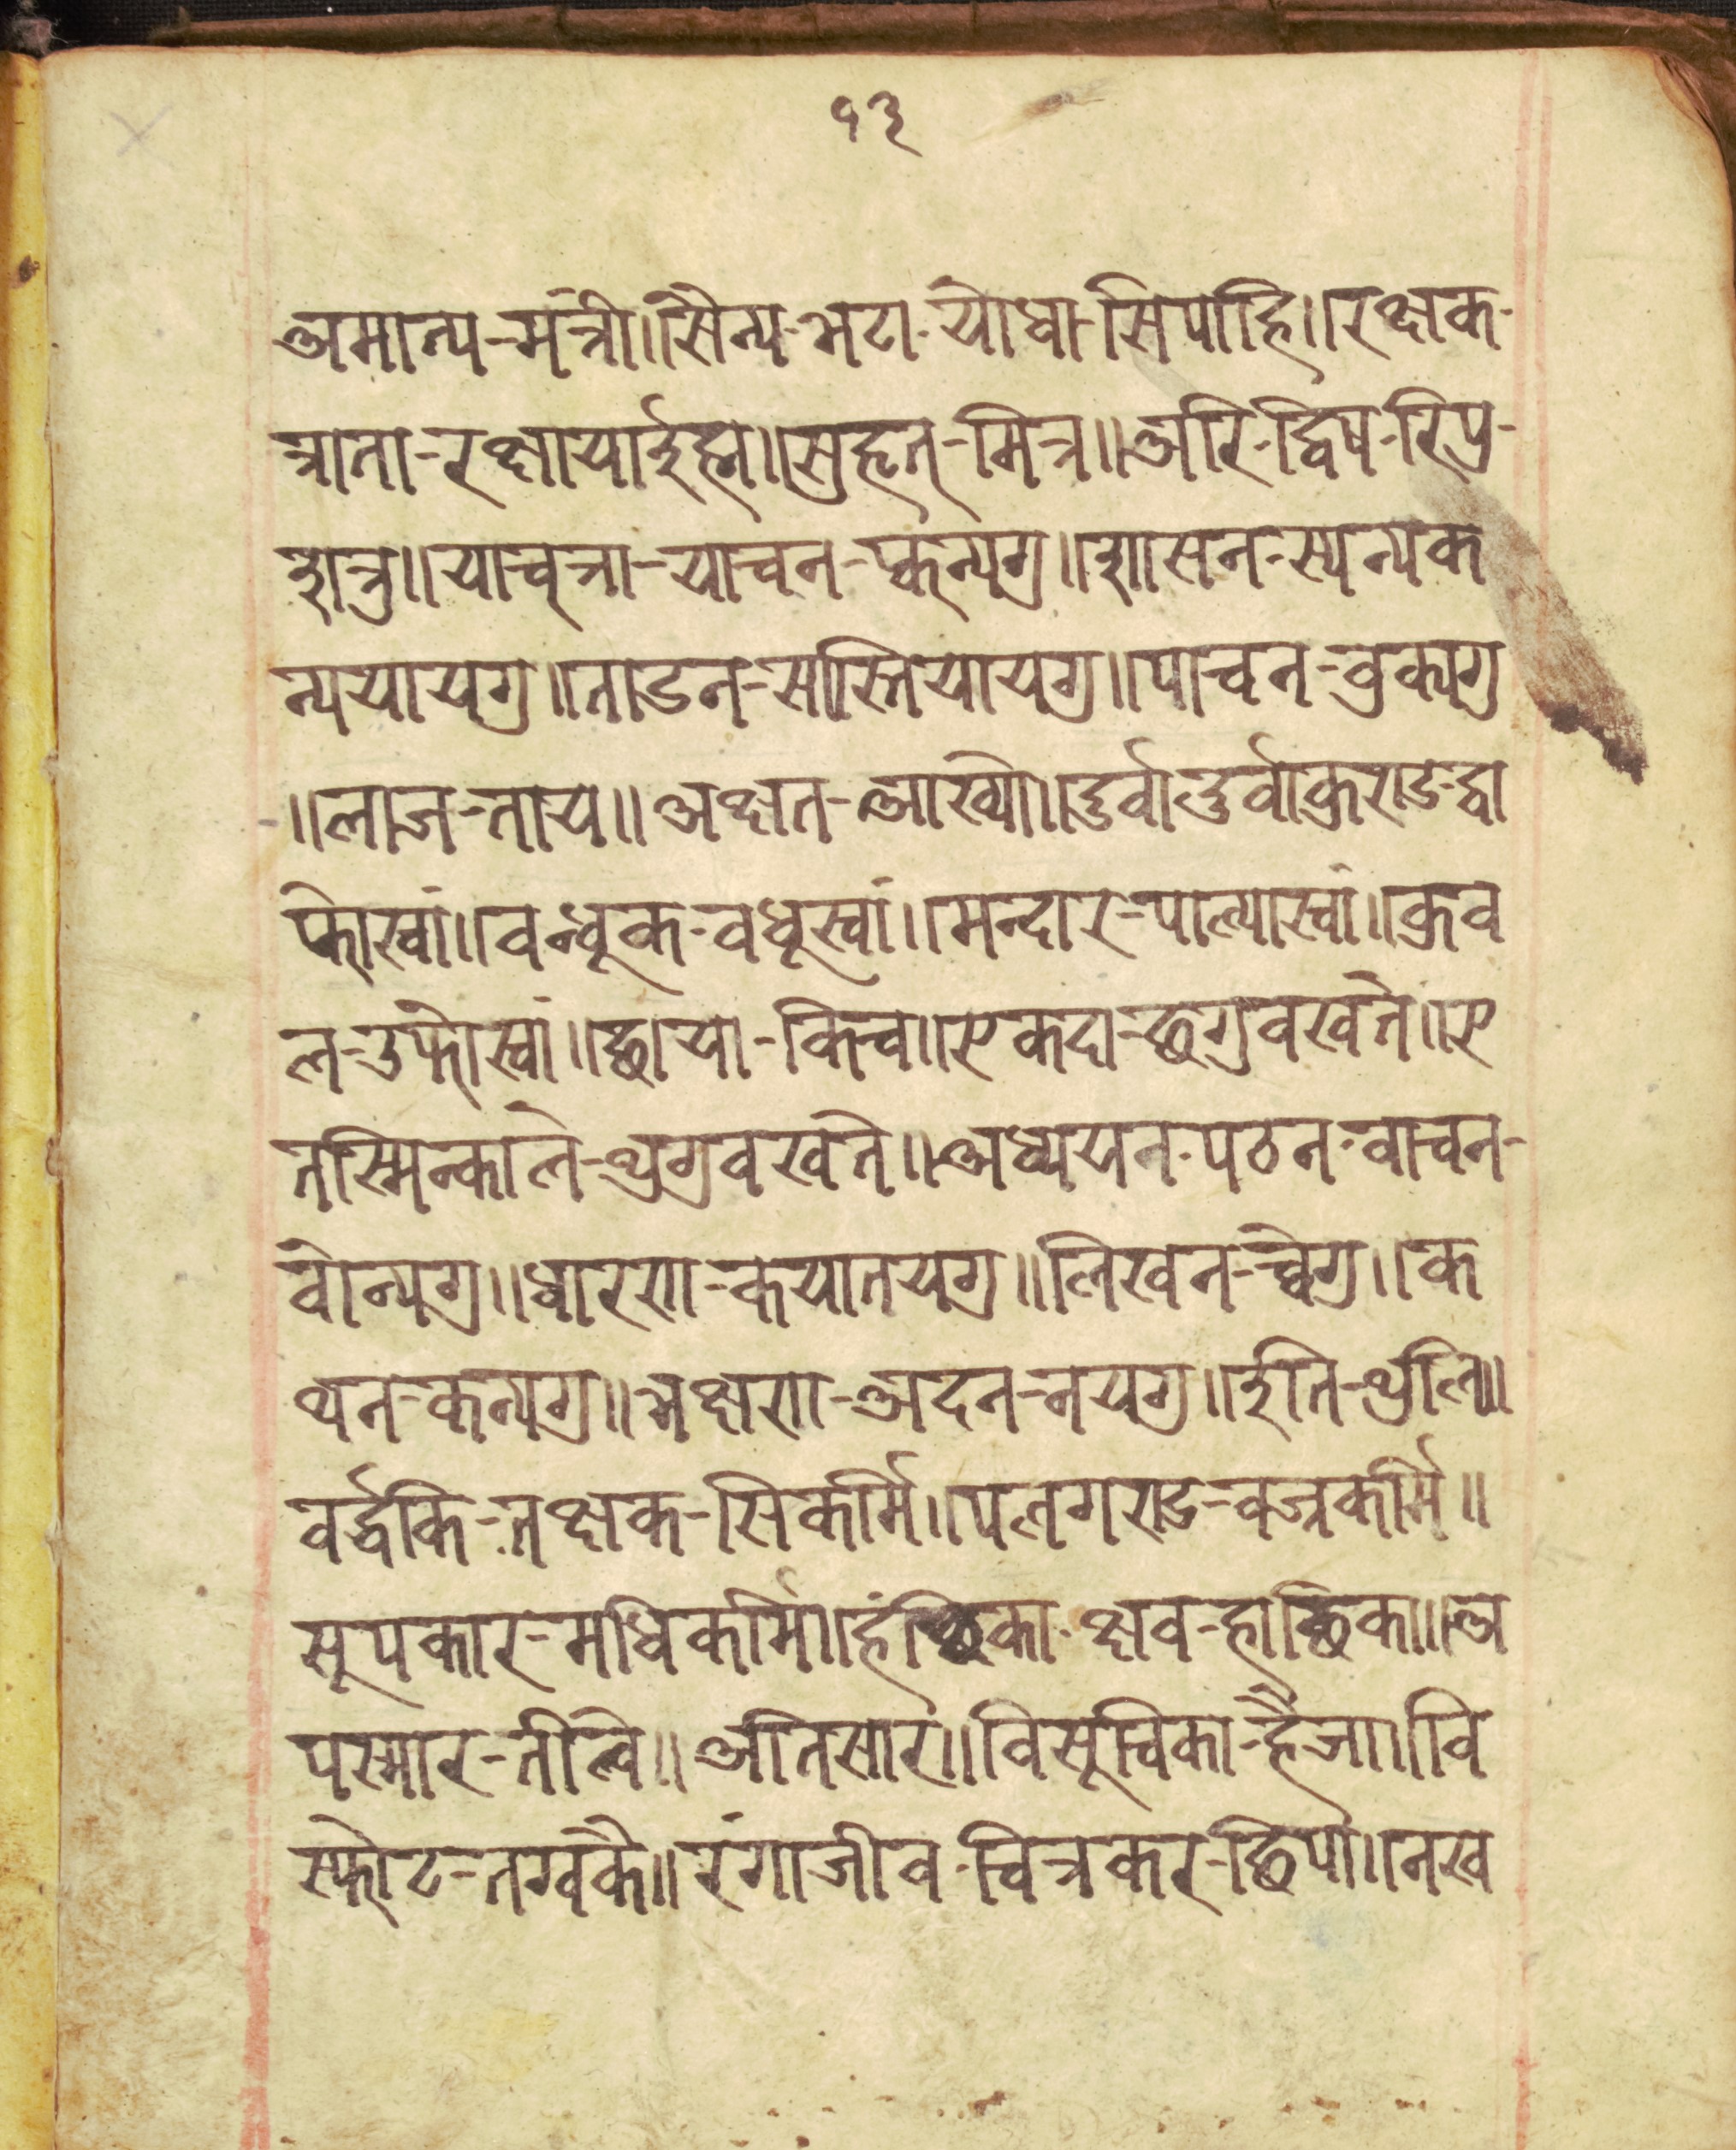 १३
अमात्य-मंत्री॥सैन्य-भटा-योधा-सिपाहि॥रक्षक-
त्राता-रक्षायाईह्म॥सुहृत्-मित्र॥अरि-द्विष-रिपु-
शत्रु॥याच्ञा-याचन-फ्वंन्यगु॥शासन-स्यन्यक
न्ययायगु॥ताडन-सास्तियायगु॥पाचन-वुक्यगु
॥लाज-ताय॥अक्षत-आख्ये॥दुर्वा-दुर्वाकुराङ-द्वा
फोस्वां॥वन्धूक-वधूस्वां॥मन्दार-पाल्यास्वां॥कुव
ल-उफोस्वां॥छाया-किच॥एकदा-छगुवखते॥ए
तस्मिन्काले-थुगुवखते॥अध्ययन-पठन-वाचन-
वोन्यगु॥धारणा-कयातयगु॥लिखन-च्वेगु॥क
थन-कन्यगु॥भक्षण-अदन-नयगु॥इति-थुलि॥
वर्द्धकि-तक्षक-सिकर्मि॥पलगण्ड-वज्रकर्मि॥
सूपकार-मधिकर्मि॥हंछिका-क्षव-हाछिका॥अ
पस्मार-तील्वे॥अतिसार॥विसूचिका-हैजा॥वि
स्फोट-तग्वकै॥रंगाजीव-चित्रकर-छिपा॥नख